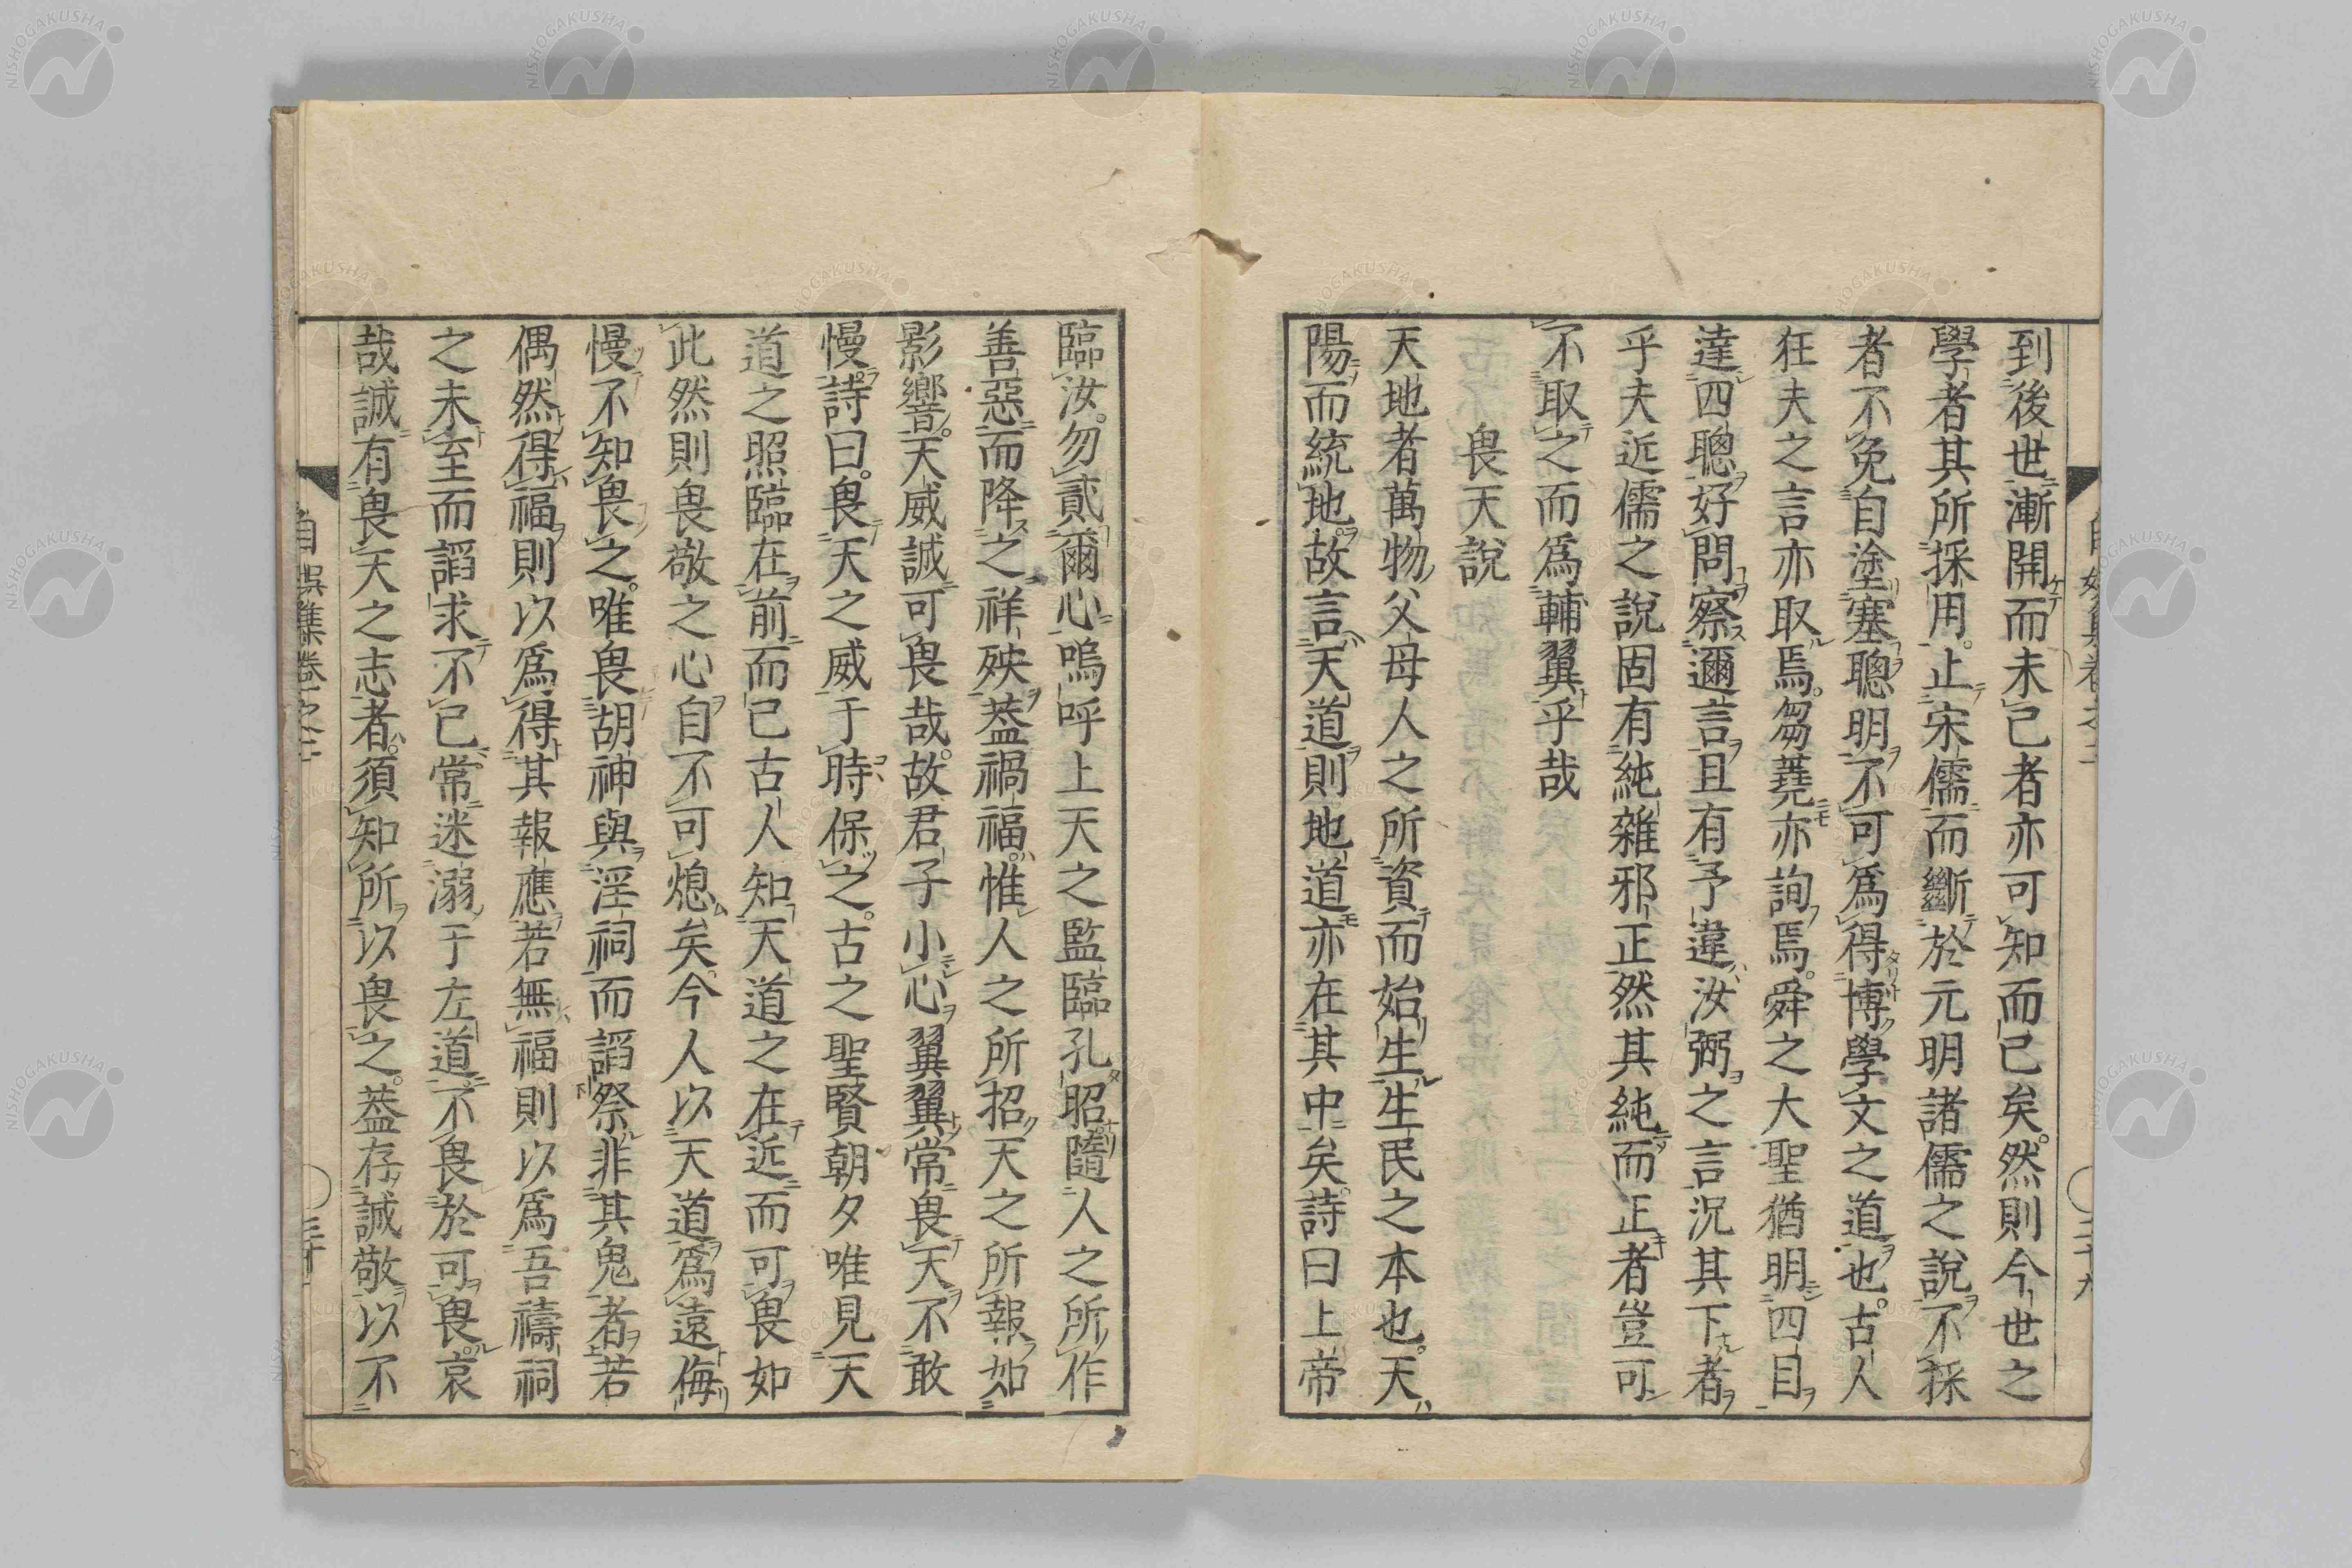 到後世漸開而未已者亦可知而已矣。然則今世之
學者其所採用。止宋儒而斷於元明諸儒之說不採
者不免自塗塞聰明不可爲得博學文之道也。古人
狂夫之言亦取焉。芻蕘亦詢焉。舜之大聖猶明四目
達四聰好問察邇言且有予違汝弼之言況其下者
乎夫近儒之說固有純雜邪正然其純而正者豈可
不取之而爲輔翼乎哉
畏天說
天地者萬物父母人之所資而始生生民之本也。天
陽而統地故言天道則地道亦在其中矣詩曰上帝
臨汝。勿貳爾心嗚呼上天之監臨孔昭隨人之所作
善惡而降之祥殃葢禍福。惟人之所招天之所報如
影響。天威誠可畏哉。故君子小心翼翼常畏天不敢
慢。詩曰。畏天之威于時保之。古之聖賢朝夕唯見天
道之照臨在前而已古人知天道之在近而可畏如
此然則畏敬之心自不可熄矣今人以天道爲遠侮
慢不知畏之。唯畏胡神與淫祠而謟祭非其鬼者若
偶然得福則以爲得其報應若無福則以爲吾禱祠
之未至而謟求不已常迷溺于左道不畏於可畏。哀
哉誠有畏天之志者。須知所以畏之。葢存誠敬以不
自娯集卷之二
三十
二十九
NISHOGAKUSHA